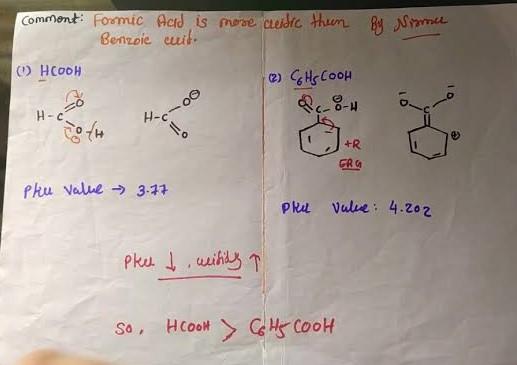 Comment: Formic Acid is more acidic than By Nirmee
Benzoic acid.
(1) HCOOH
(2) C6H5COOH
H-C O O H
H-C O⊖ O
O C-O-H
O⁻ C O⁻
⊕
+R
ERG
Pka Value → 3.77
Pka Value: 4.202
Pka ↓, acidity ↑
So, HCOOH > C6H5COOH